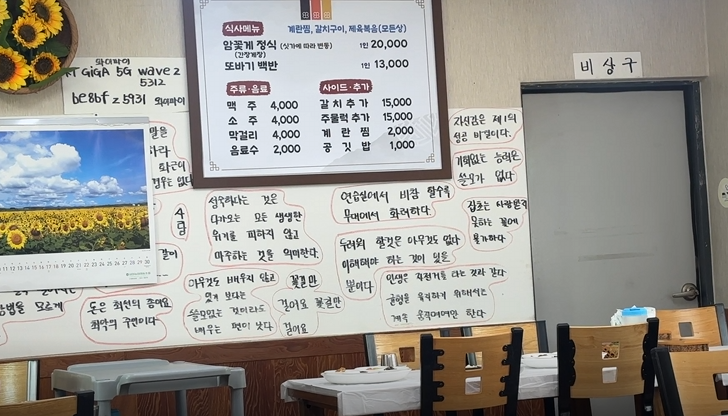 식사메뉴
계란찜, 갈치구이, 제육볶음(모든상)
암꽃게 정식 (싯가에 따라 변동) 1인 20,000
(간장게장)
또바기 백반 1인 13,000
주류·음료
맥 주 4,000
소 주 4,000
막걸리 4,000
음료수 2,000
사이드·추가
갈치추가 15,000
주물럭추가 15,000
계 란 찜 2,000
공 깃 밥 1,000
비상구
와이파이
KT GiGA 5G wave2
5312
be8bf25931 와이파이
말을
하라.
없다
사랑
성숙하다는 것은
다가오는 모든 생생한
위기를 피하지 않고
마주하는 것을 의미한다.
연습실에서 비참 할수록
무대에서 화려하다.
두려워 할것은 아무것도 없다
이해해야 하는 것이 있을
뿐이다
자신감은 제1의
성공 비결이다.
기회없는 능력은
쓸모가 없다
잡초는 사람손길
못하는 꽃에
불과하다
인생은 자전거를 타는 것과 같다
균형을 유지하기 위해서는
계속 움직여야만 한다.
아무것도 배우지 않고
있게 보다는
쓸모없는 것이라도
배우는 편이 낫다.
꽃길만
걸어요 꽃길만
걸어요
같이
방법을 모르게
돈은 최선의 종이요
최악의 주인이다
11 12 13 14 15 16 17 18 19 20 21 22 23 24 25 26 27 28 29 30